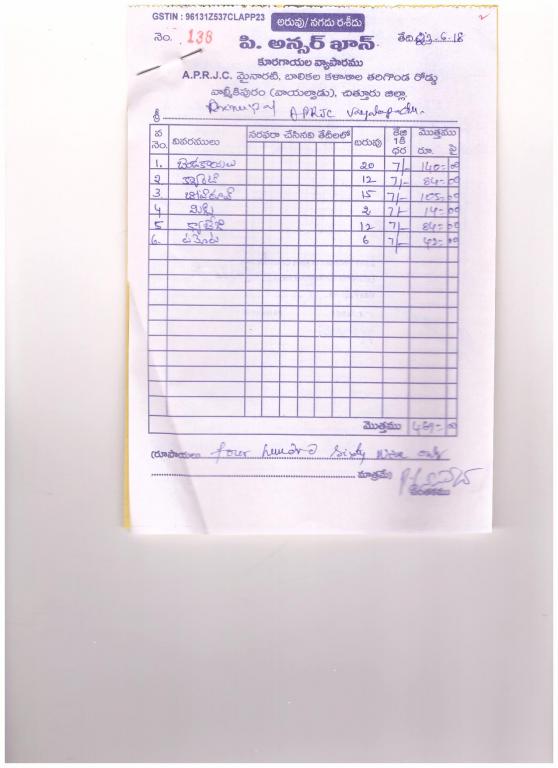 GSTIN : 96131Z537CLAPP23 అరువు/ నగదు రశీదు
నెం. 138 తేది 23-6-18
పి. అన్సర్ ఖాన్
కూరగాయల వ్యాపారము
A.P.R.J.C. మైనారటి, బాలికల కళాశాల తరిగొండ రోడ్డు
వాల్మీకిపురం (వాయల్పాడు), చిత్తూరు జిల్లా.
శ్రీ Principal APRJC Vayalapadu.
వ నెం. వివరములు సరఫరా చేసినవి తేదీలలో బరువు కేజి 1కి ధర మొత్తము రూ. పై
1. 20 7/- 140=00
2 క్యారెట్ 12 7/- 84=00
3 బీట్‌రూట్ 15 7/- 105=00
4 మిర్చి 2 7/- 14=00
5 క్యాబేజి 12 7/- 84=00
6. టమోట 6 7/- 42=00
మొత్తము 469=00
(రూపాయలు four hundred sixty nine only
మాత్రమే)
సంతకము